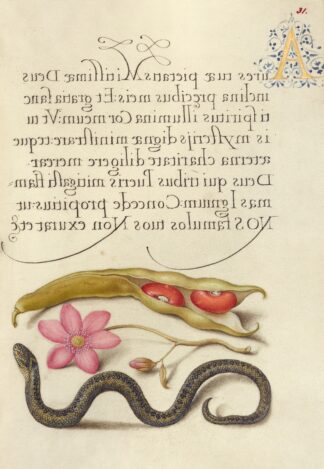 31.
Aures tuæ pietatis Mitissime Deus
inclina precibus meis Et gratia sanc
ti spiritus illumina Cor meum Vt tu
is mysterijs dignæ ministrare: teque
æterna charitate diligere merear
Deus qui tribus Pueris mitigasti flam
mas Ignium: Concede propitius: ut
NOS famulos tuos Non exurat etc